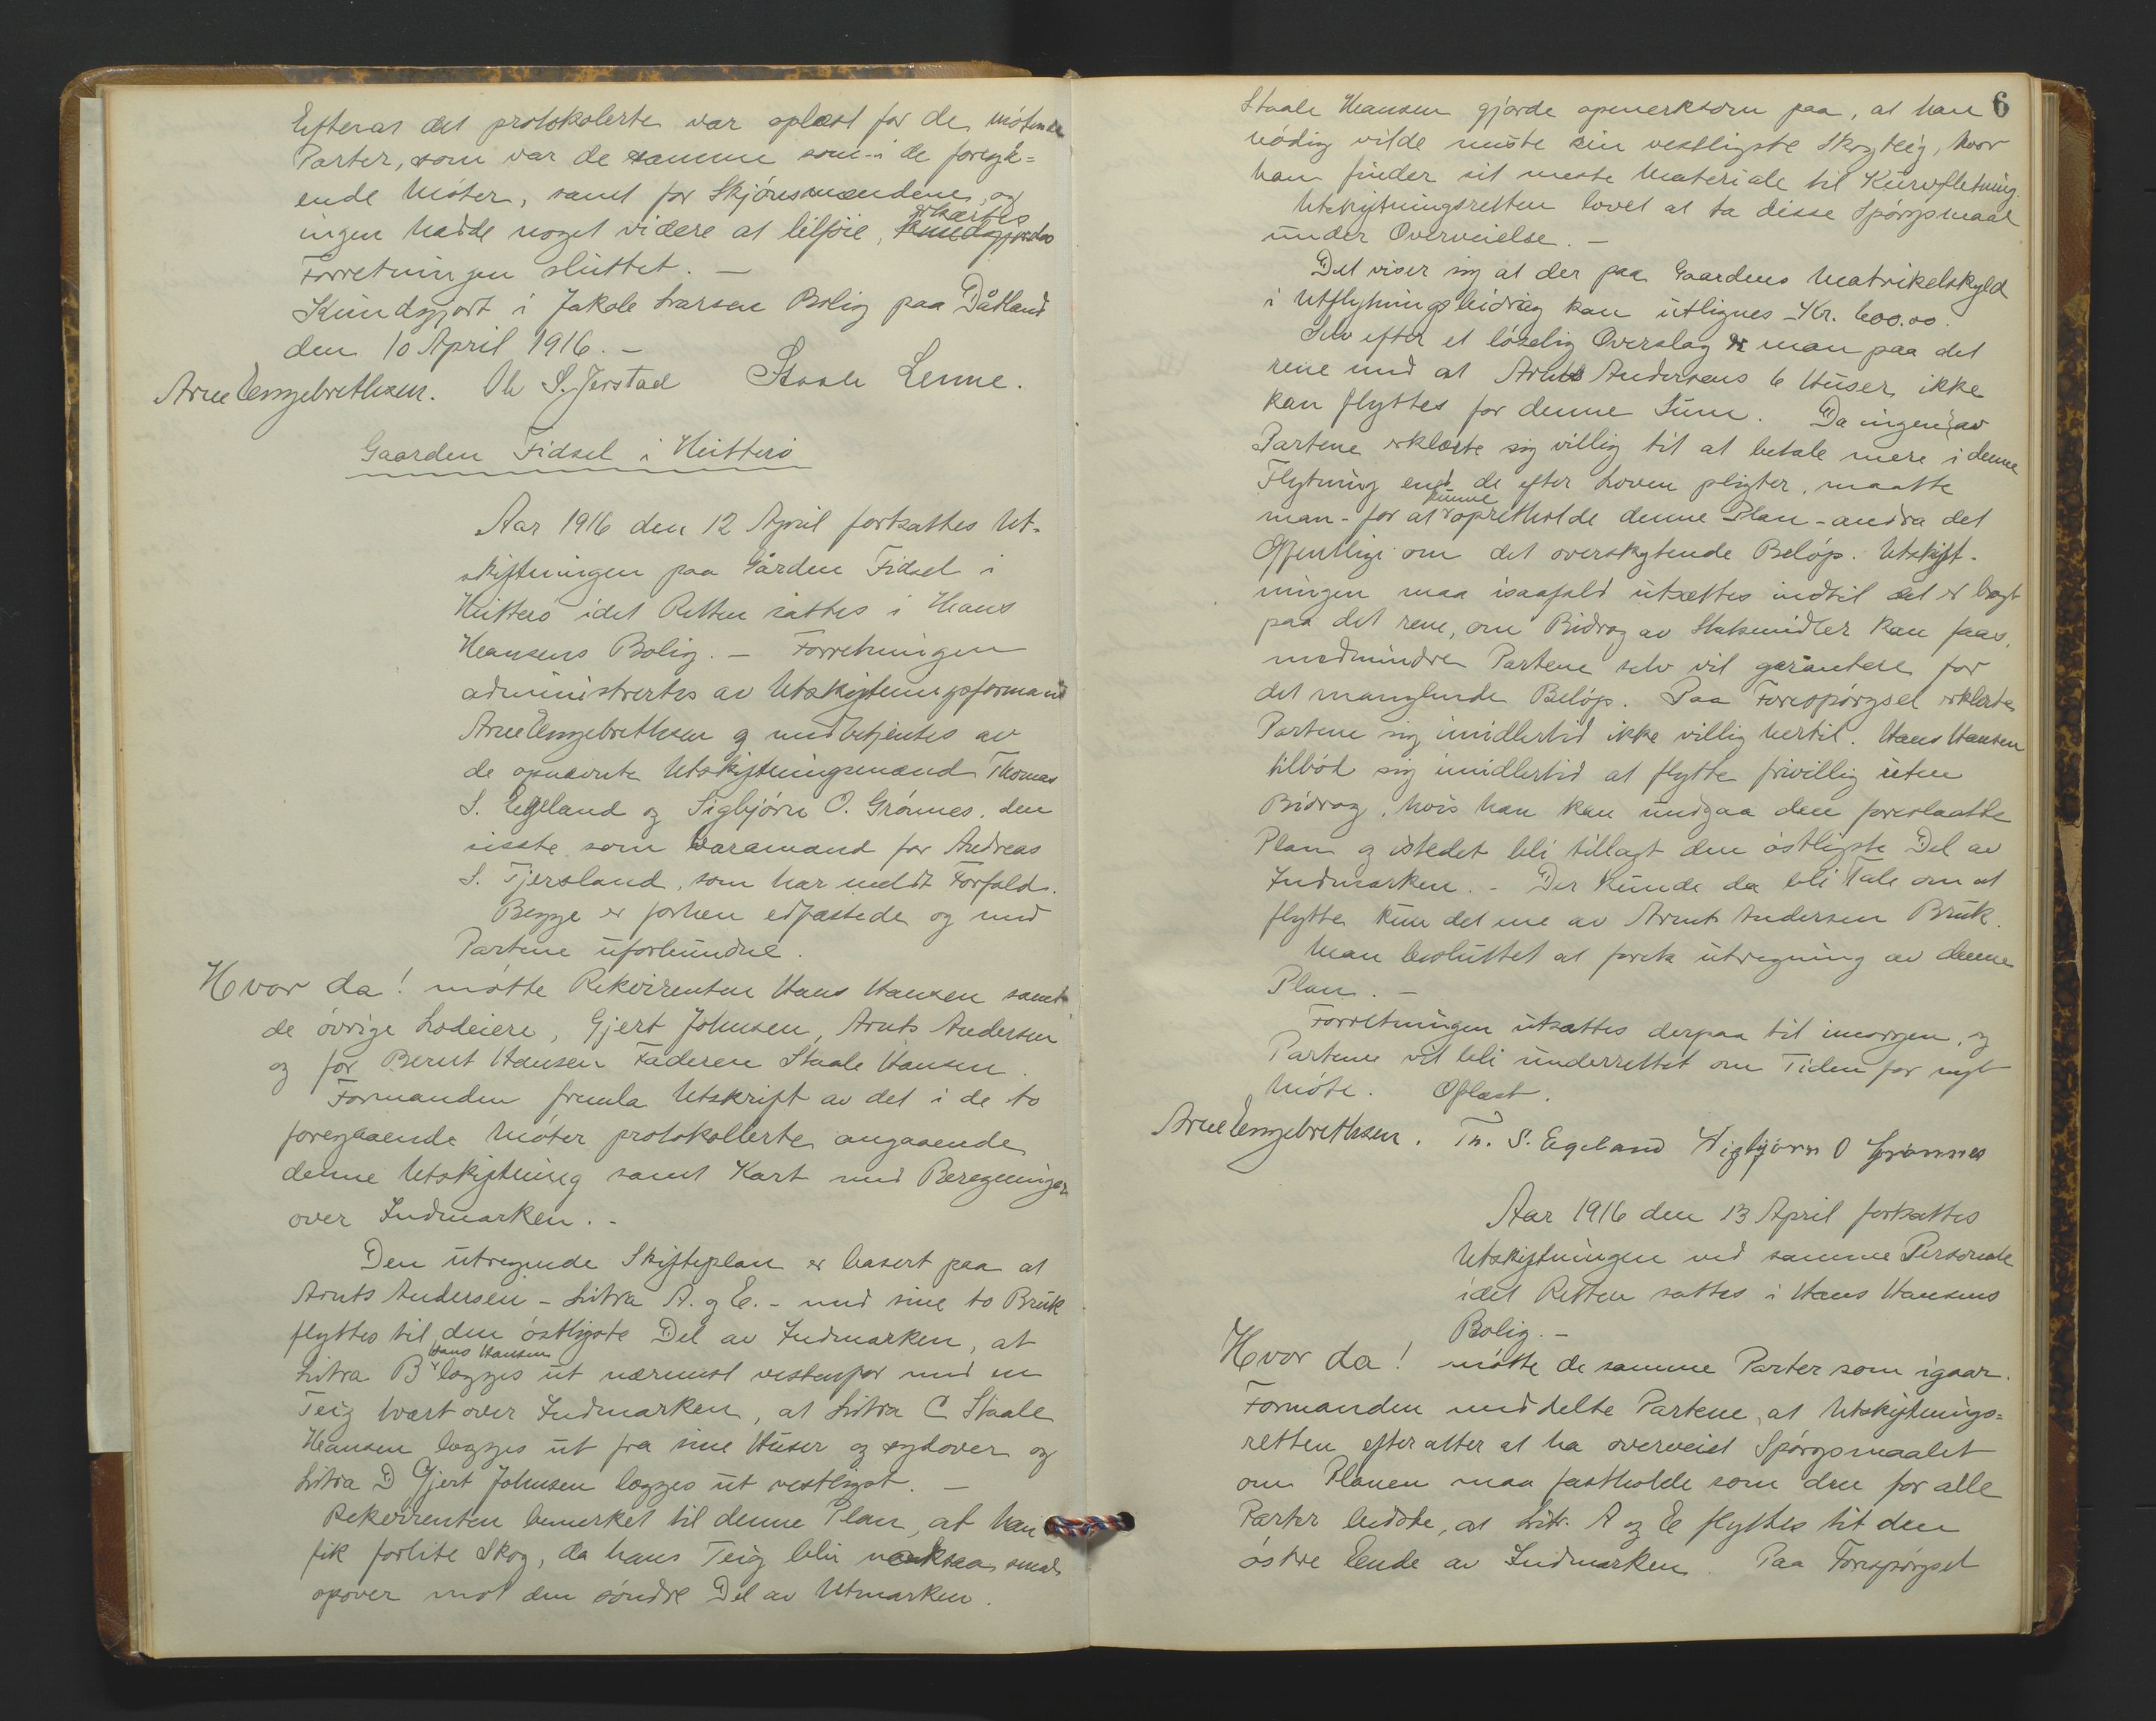 Efterat det protokolerte var oplæst for de møtende
Parter, som var de samme som i de foregå=
ende Møter, samt for Skjønsmændene, og
ingen hadde noget videre at tilføie, erklærtes
Forretningen sluttet. —
Kundgjort i Jakob Larsen Bolig paa Dåtland
den 10 April 1916. —
Arne Engebrethsen. Ole S. Jerstad Staale Lenne.
Gaarden Fidsel i Hitterö
Aar 1916 den 12 April fortsattes Ut-
skiftningen paa Gården Fidsel i
Hitterö idet Retten sattes i Hans
Hansens Bolig. — Forretningen
administrertes av Utskiftningsformand
Arne Engebrethsen og medbetjentes av
de opnævnte Utskiftningsmænd Thomas
S. Egeland og Sigbjørn O. Grønnes, den
sisste som Varamand for Andreas
S. Tjersland, som har meldt Forfald.
Begge er forhen edfæstede og med
Partene uforbundne.
Hvor da! møtte Rekvirenten Hans Hansen samt
de övrige Lodeiere, Gjert Johnsen, Arnts Andersen
og for Bernt Hansen Faderen Staale Hansen.
Formanden fremla Utskrift av det i de to
foregaaende Møter protokollerte angaaende
denne Utskiftning samt Kart med Beregninger
over Indmarken. -
Den utregnede Skifteplan er basert paa at
Arnts Andersen - Litra A. og E. - med sine to Bruk
flyttes til den östligste Del av Indmarken, at
Litra B Hans Hansen lægges ut nærmest vestenfor med en
Teig tvært over Indmarken, at Litra C Staale
Hansen lægges ut fra sine Huser og sydover og
Litra D Gjert Johnsen lægges ut vestligst. —
Rekvirenten bemerket til denne Plan, at han
fik forlite Skog, da hans Teig blir noksaa smal
opover mot den söndre Del av Utmarken.
6
Staale Hansen gjorde opmerksom paa, at han
nödig vilde miste sin vestligste Skogteig, hvor
han finder sit meste Materiale til Kurvfletning.
Utskiftningsretten lovet at ta disse Spörgsmaal
under Overveielse. —
Det viser sig at der paa Gaardens Matrikelskyld
i Utflytningsbidrag kan utlignes - Kr. 600.00.
Selv efter et löselig Overslag er man paa det
rene med at Arnts Andersens 6 Huser ikke
kan flyttes for denne Sum. Da ingen av
Partene erklærte sig villig til at betale mere i denne
Flytning end de efter Loven pligter, maatte
man - for at kunne opretholde denne Plan - andra det
Offentlige om det overskytende Belöp. Utskift-
ningen maa isaafald utsættes indtil det er bragt
paa det rene, om Bidrag av Statsmidler kan faas,
medmindre Partene selv vil garantere for
det manglende Belöp. Paa Forespörgsel erklærte
Partene sig imidlertid ikke villig hertil. Hans Hansen
tilböd sig imidlertid at flytte frivillig uten
Bidrag, hvis han kan undgaa den foreslaatte
Plan og istedet bli tillagt den östligste Del av
Indmarken. - Der kunde da bli Tale om at
flytte kun det ene av Arnts Andersen Bruk.
Man besluttet at foreta utregning av denne
Plan. —
Forretningen utsattes derpaa til imorgen, og
Partene vil bli underrettet om Tiden for nyt
Möte. Oplæst.
Arne Engebrethsen. Th. S. Egeland Sigbjørn O Grønnes
Aar 1916 den 13 April fortsattes
Utskiftningen ved samme Personale
idet Retten sattes i Hans Hansens
Bolig. -
Hvor da! mötte de samme Parter som igaar.
Formanden meddelte Partene, at Utskiftnings=
retten efter atter at ha overveiet Spörgsmaalet
om Planen maa fastholde som den for alle
Parter bedste, at Litr. A og E flyttes til den
östre Ende av Indmarken. Paa Forespörgsel